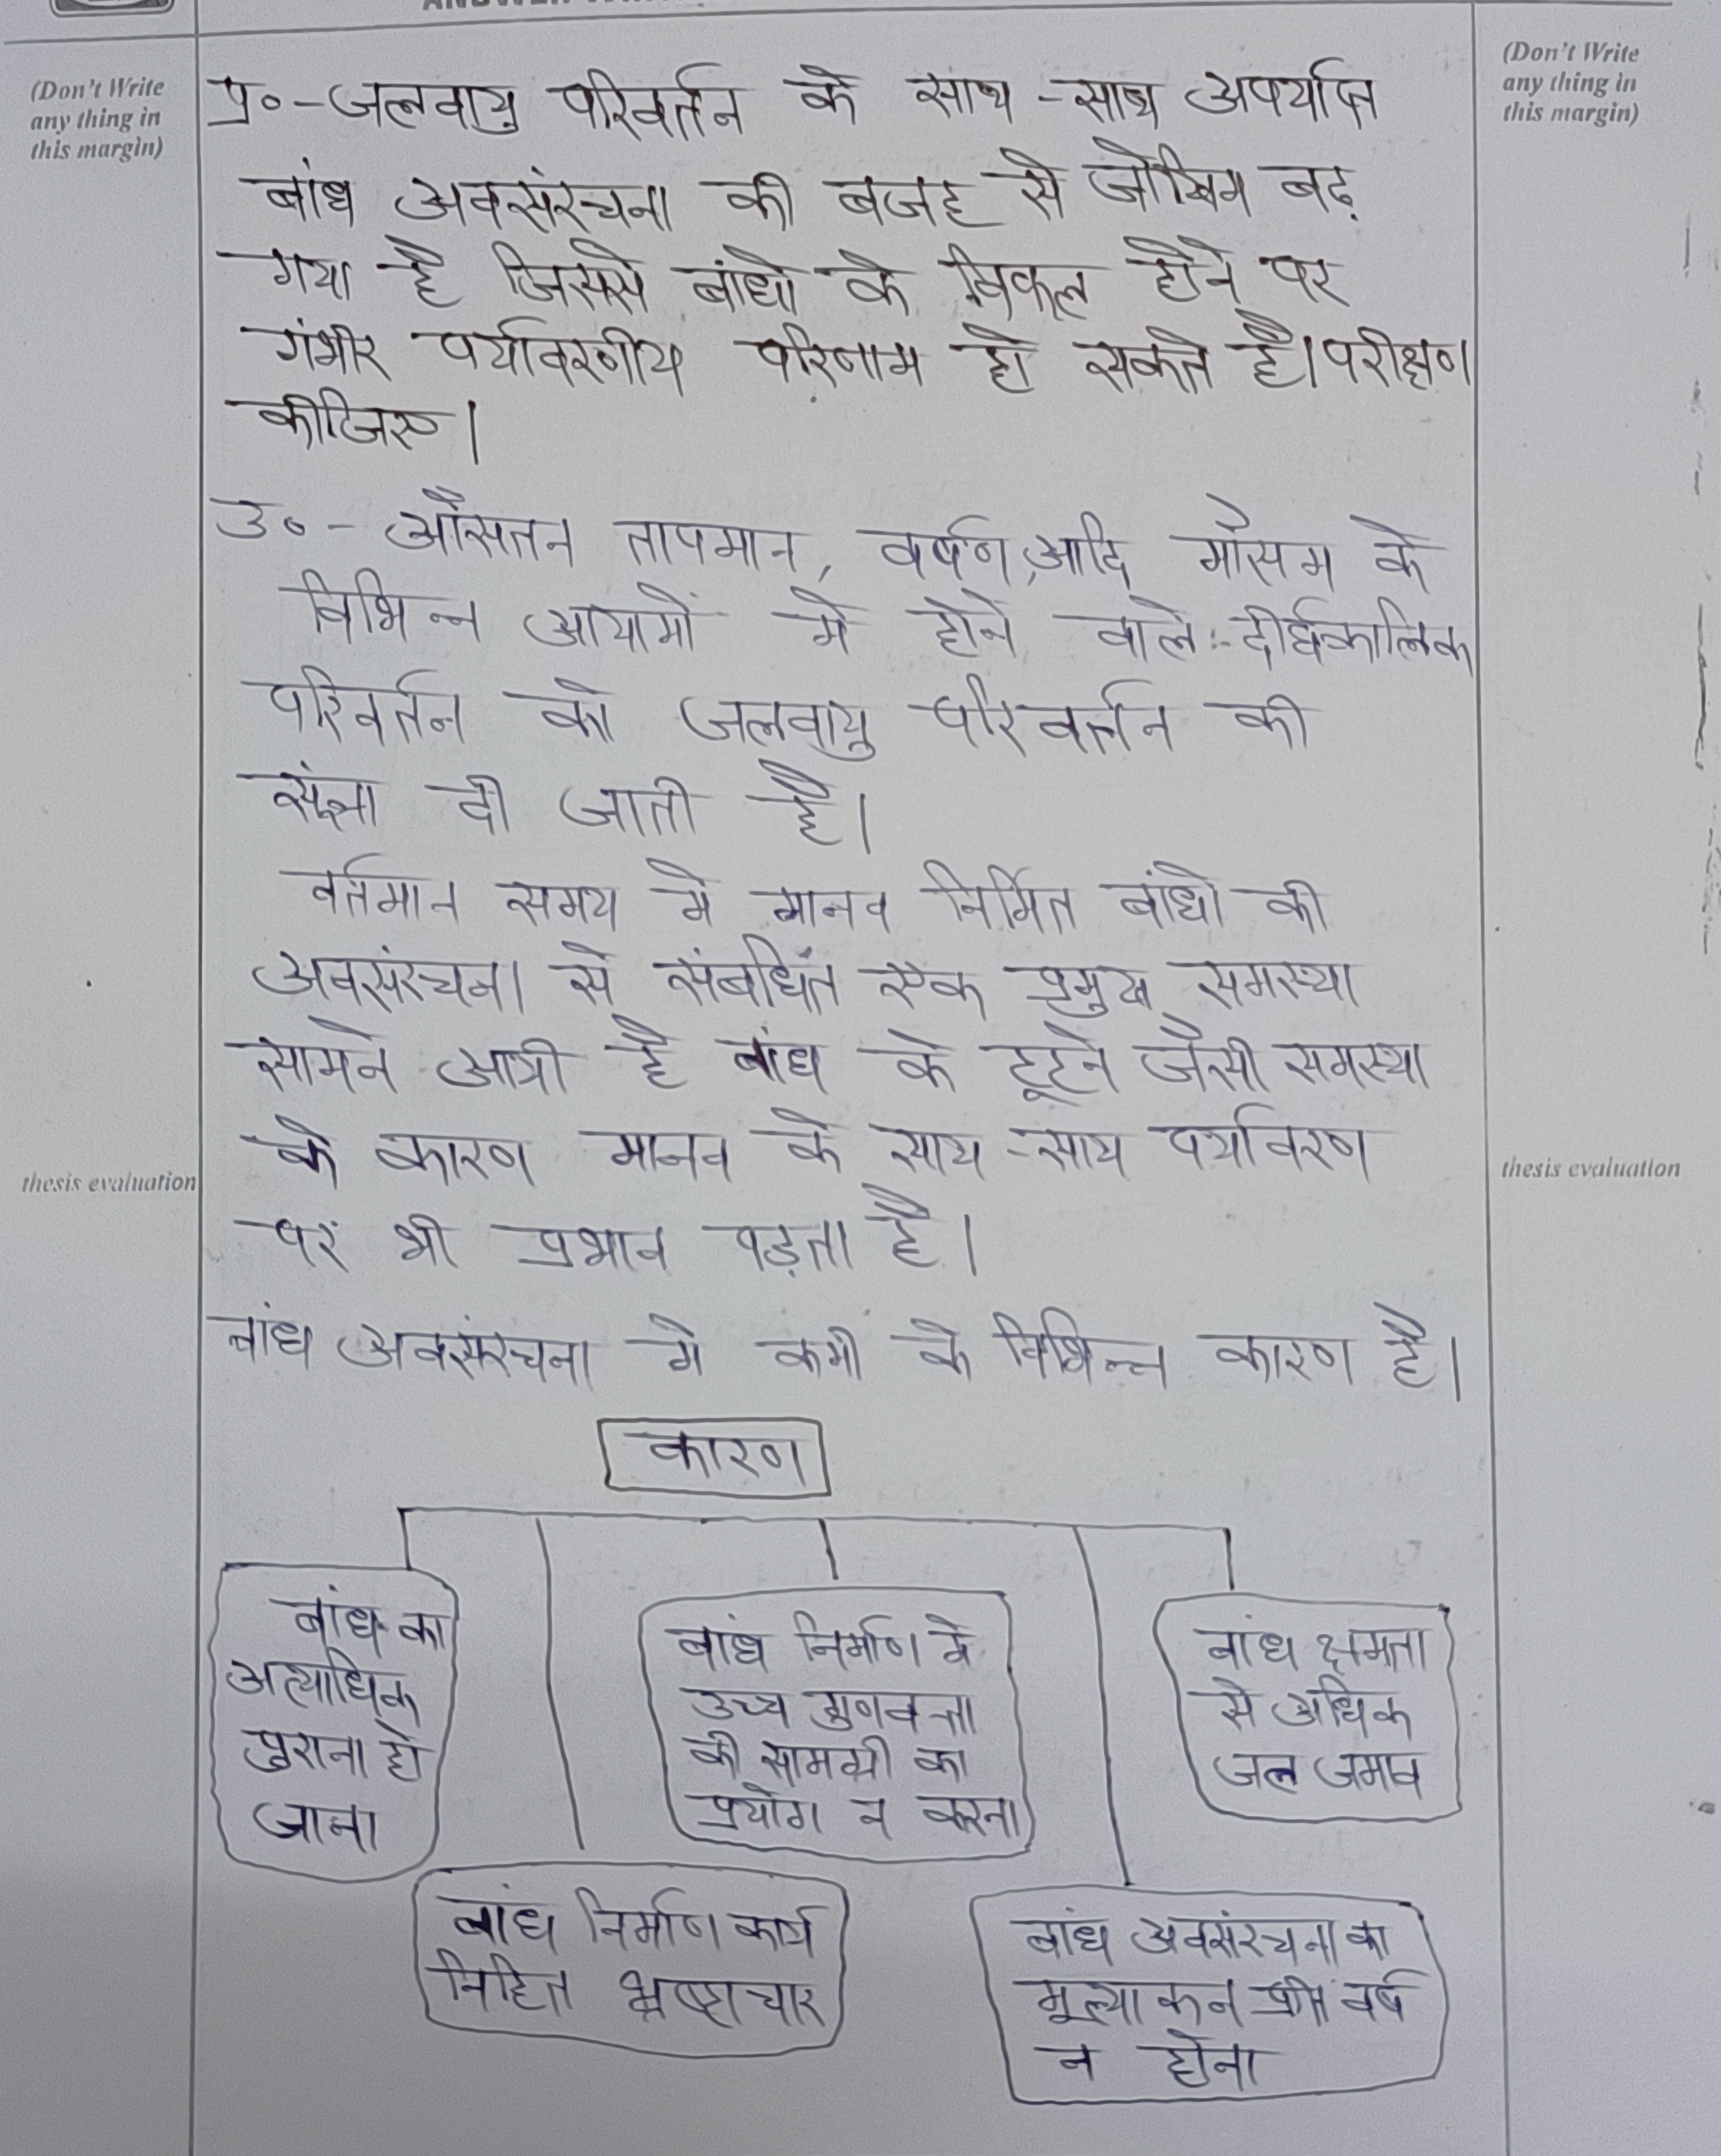 (Don't Write
any thing in
this margin)
(Don't Write
any thing in
this margin)
प्र०-जलवायु परिवर्तन के साथ-साथ अपर्याप्त
बांध अवसंरचना की बजह से जोखिम बढ़
गया है जिससे बांधो के विफल होने पर
गंभीर पर्यावरणीय परिणाम हो सकते है। परीक्षण
कीजिए।
उ०- औसतन तापमान, वर्षण, आदि मौसम के
विभिन्न आयामों मे होने वाले दीर्घकालिक
परिवर्तन को जलवायु परिवर्तन की
संज्ञा दी जाती है।
वर्तमान समय मे मानव निर्मित बांधो की
अवसंरचना से संबधित एक प्रमुख समस्या
सामने आयी है बांध के टूटने जैसी समस्या
के कारण मानव के साथ-साथ पर्यावरण
thesis evaluation
thesis evaluation
पर भी प्रभाव पड़ता है।
बांध अवसंरचना मे कमी के विभिन्न कारण है।
कारण
बांध का
अत्याधिक
पुराना हो
जाना
बांध निर्माण मे
उच्च गुणवत्ता
की सामग्री का
प्रयोग न करना
बांध क्षमता
से अधिक
जल जमाव
बांध निर्माण कार्य
निहित भ्रष्टाचार
बांध अवसंरचना का
मूल्याकन प्रति वर्ष
न होना